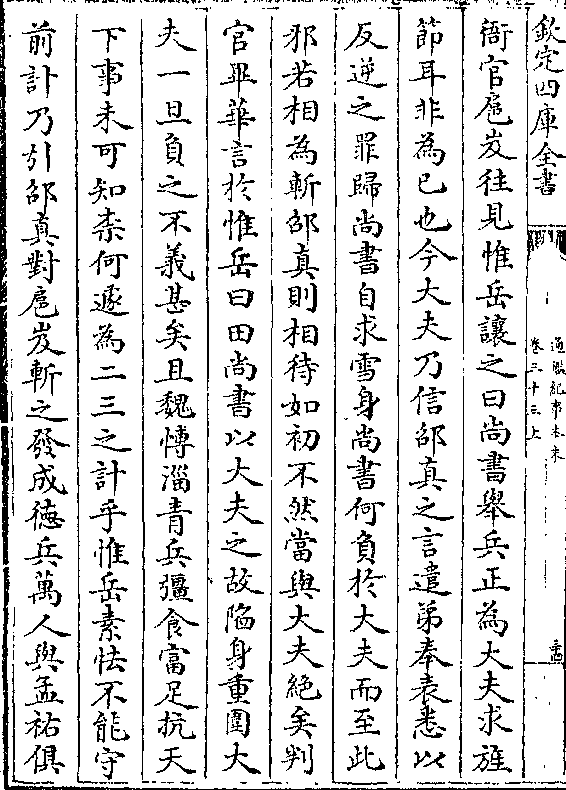 欽定四庫全書
通鑑紀事本末
卷三十三上
衙官扈岌往見惟岳讓之曰尚書舉兵正為大夫求旌
節耳非為己也今大夫乃信邵真之言遣弟奉表悉以
反逆之罪歸尚書自求雪身尚書何負於大夫而至此
邪若相為斬邵真則相待如初不然當與大夫絶矣判
官畢華言於惟岳曰田尚書以大夫之故陷身重圍大
夫一旦負之不義甚矣且魏博淄青兵彊食富足抗天
下事未可知柰何遽為二三之計乎惟岳素怯不能守
前計乃引邵真對扈岌斬之發成徳兵萬人與孟祐俱